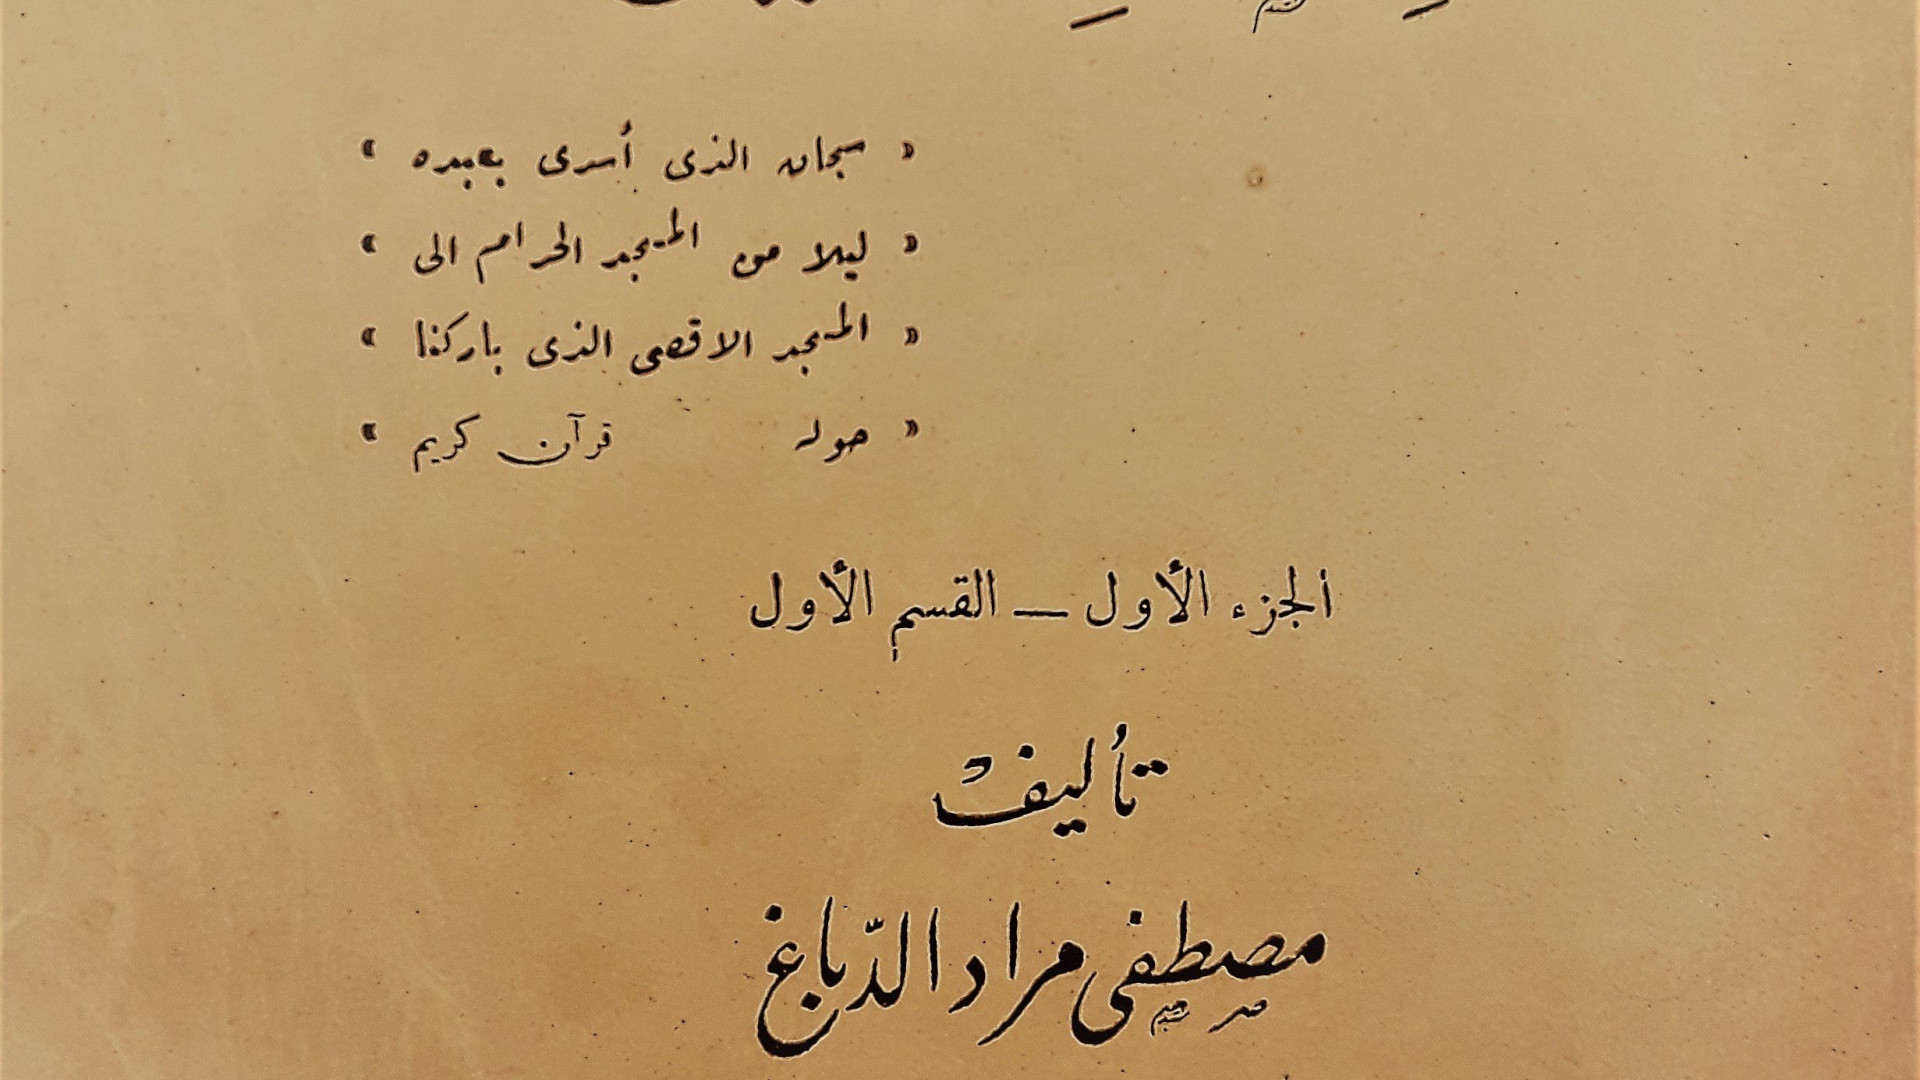 « سبحان الذى أسرى بعبده »
« ليلا من المسجد الحرام الى »
« المسجد الاقصى الذى باركنا »
« حوله قرآن كريم »
الجزء الأول — القسم الأول
تأليف
مصطفى مراد الدّباغ